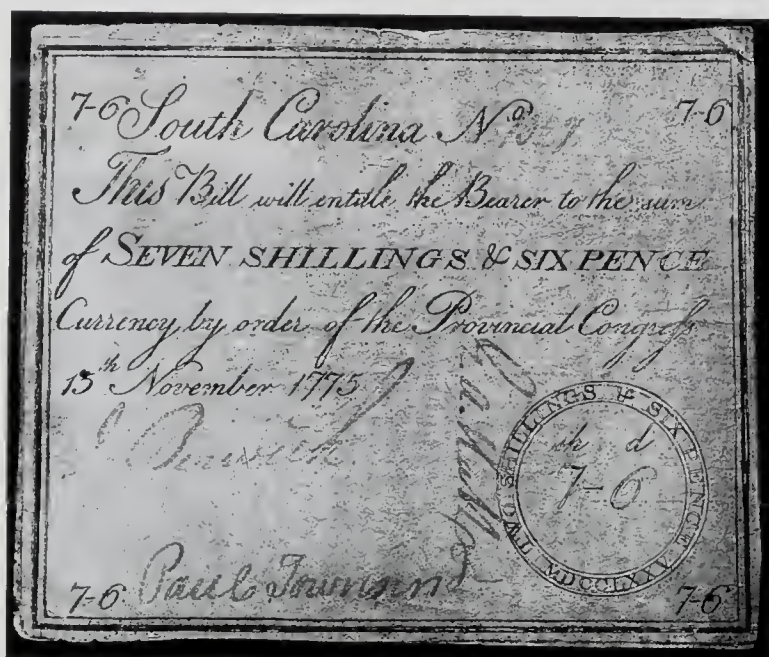 7-6 South Carolina No. 7-6
This Bill will entitle the Bearer to the sum
of SEVEN SHILLINGS & SIX PENCE
Currency by order of the Provincial Congress
15th November 1775
TWO SHILLINGS & SIX PENCE MDCCLXXV
sh d
7-6
Paul Townsend
7-6 7-6